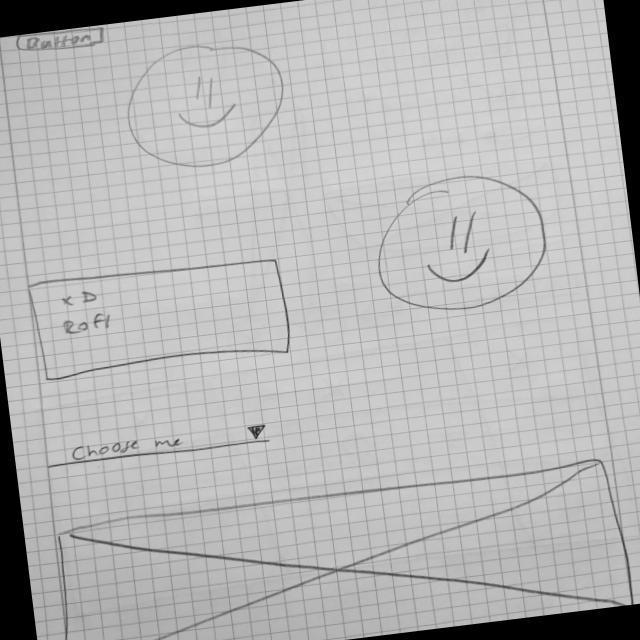 Button
xD
Rofl
Choose me